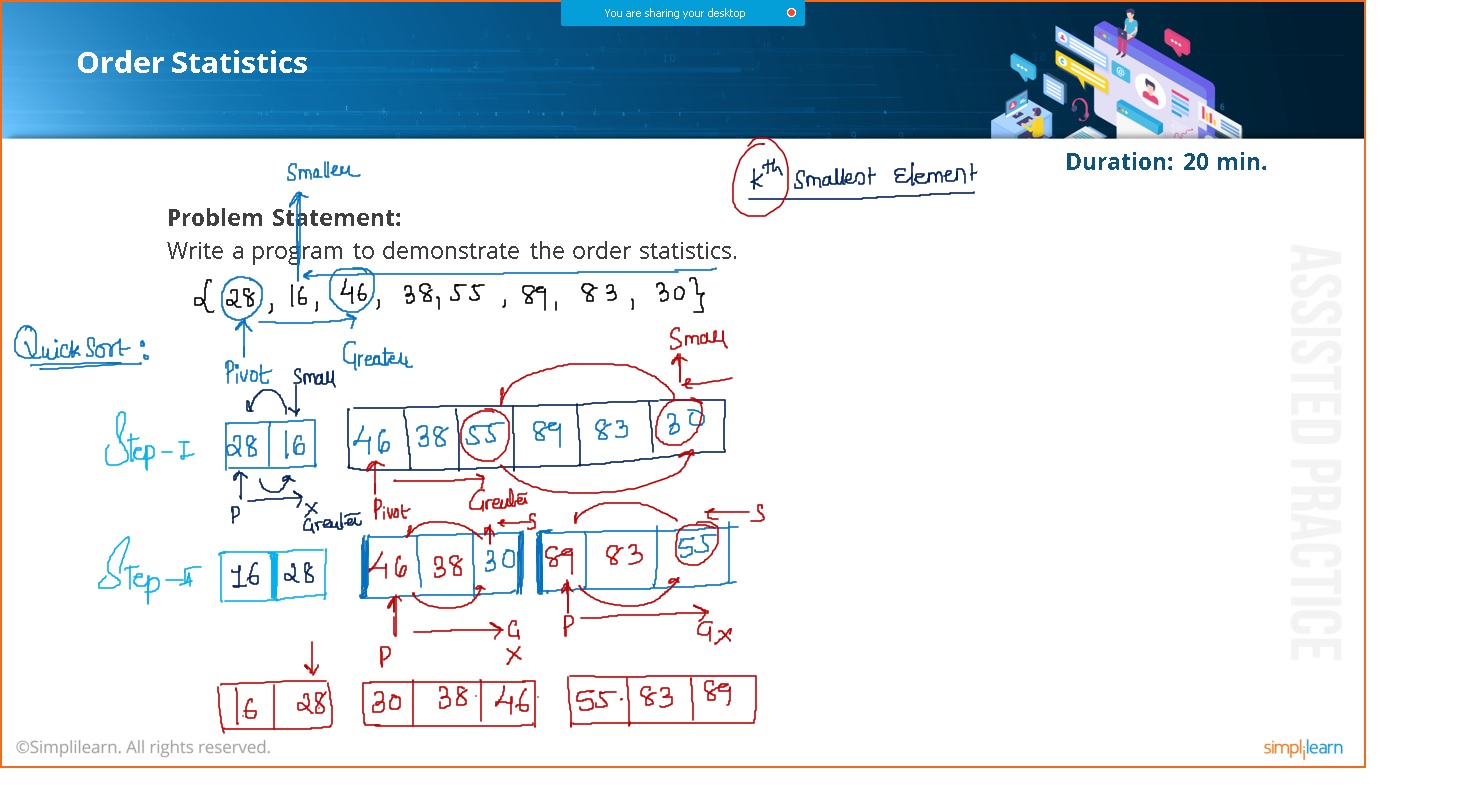 You are sharing your desktop
Order Statistics
Duration: 20 min.
Kth Smallest Element
Smaller
Problem Statement:
Write a program to demonstrate the order statistics.
{28, 16, 46, 38, 55, 89, 83, 30}
Quick Sort:
Pivot
Greater
Small
Small
Step-I
28 16
46 38 55 89 83 30
P
X
Greater
Pivot
Greater
S
S
Step-II
16 28
46 38 30
89 83 55
P
G
X
P
G X
16 28
30 38 46
55 83 89
ASSISTED PRACTICE
©Simplilearn. All rights reserved.
simplilearn